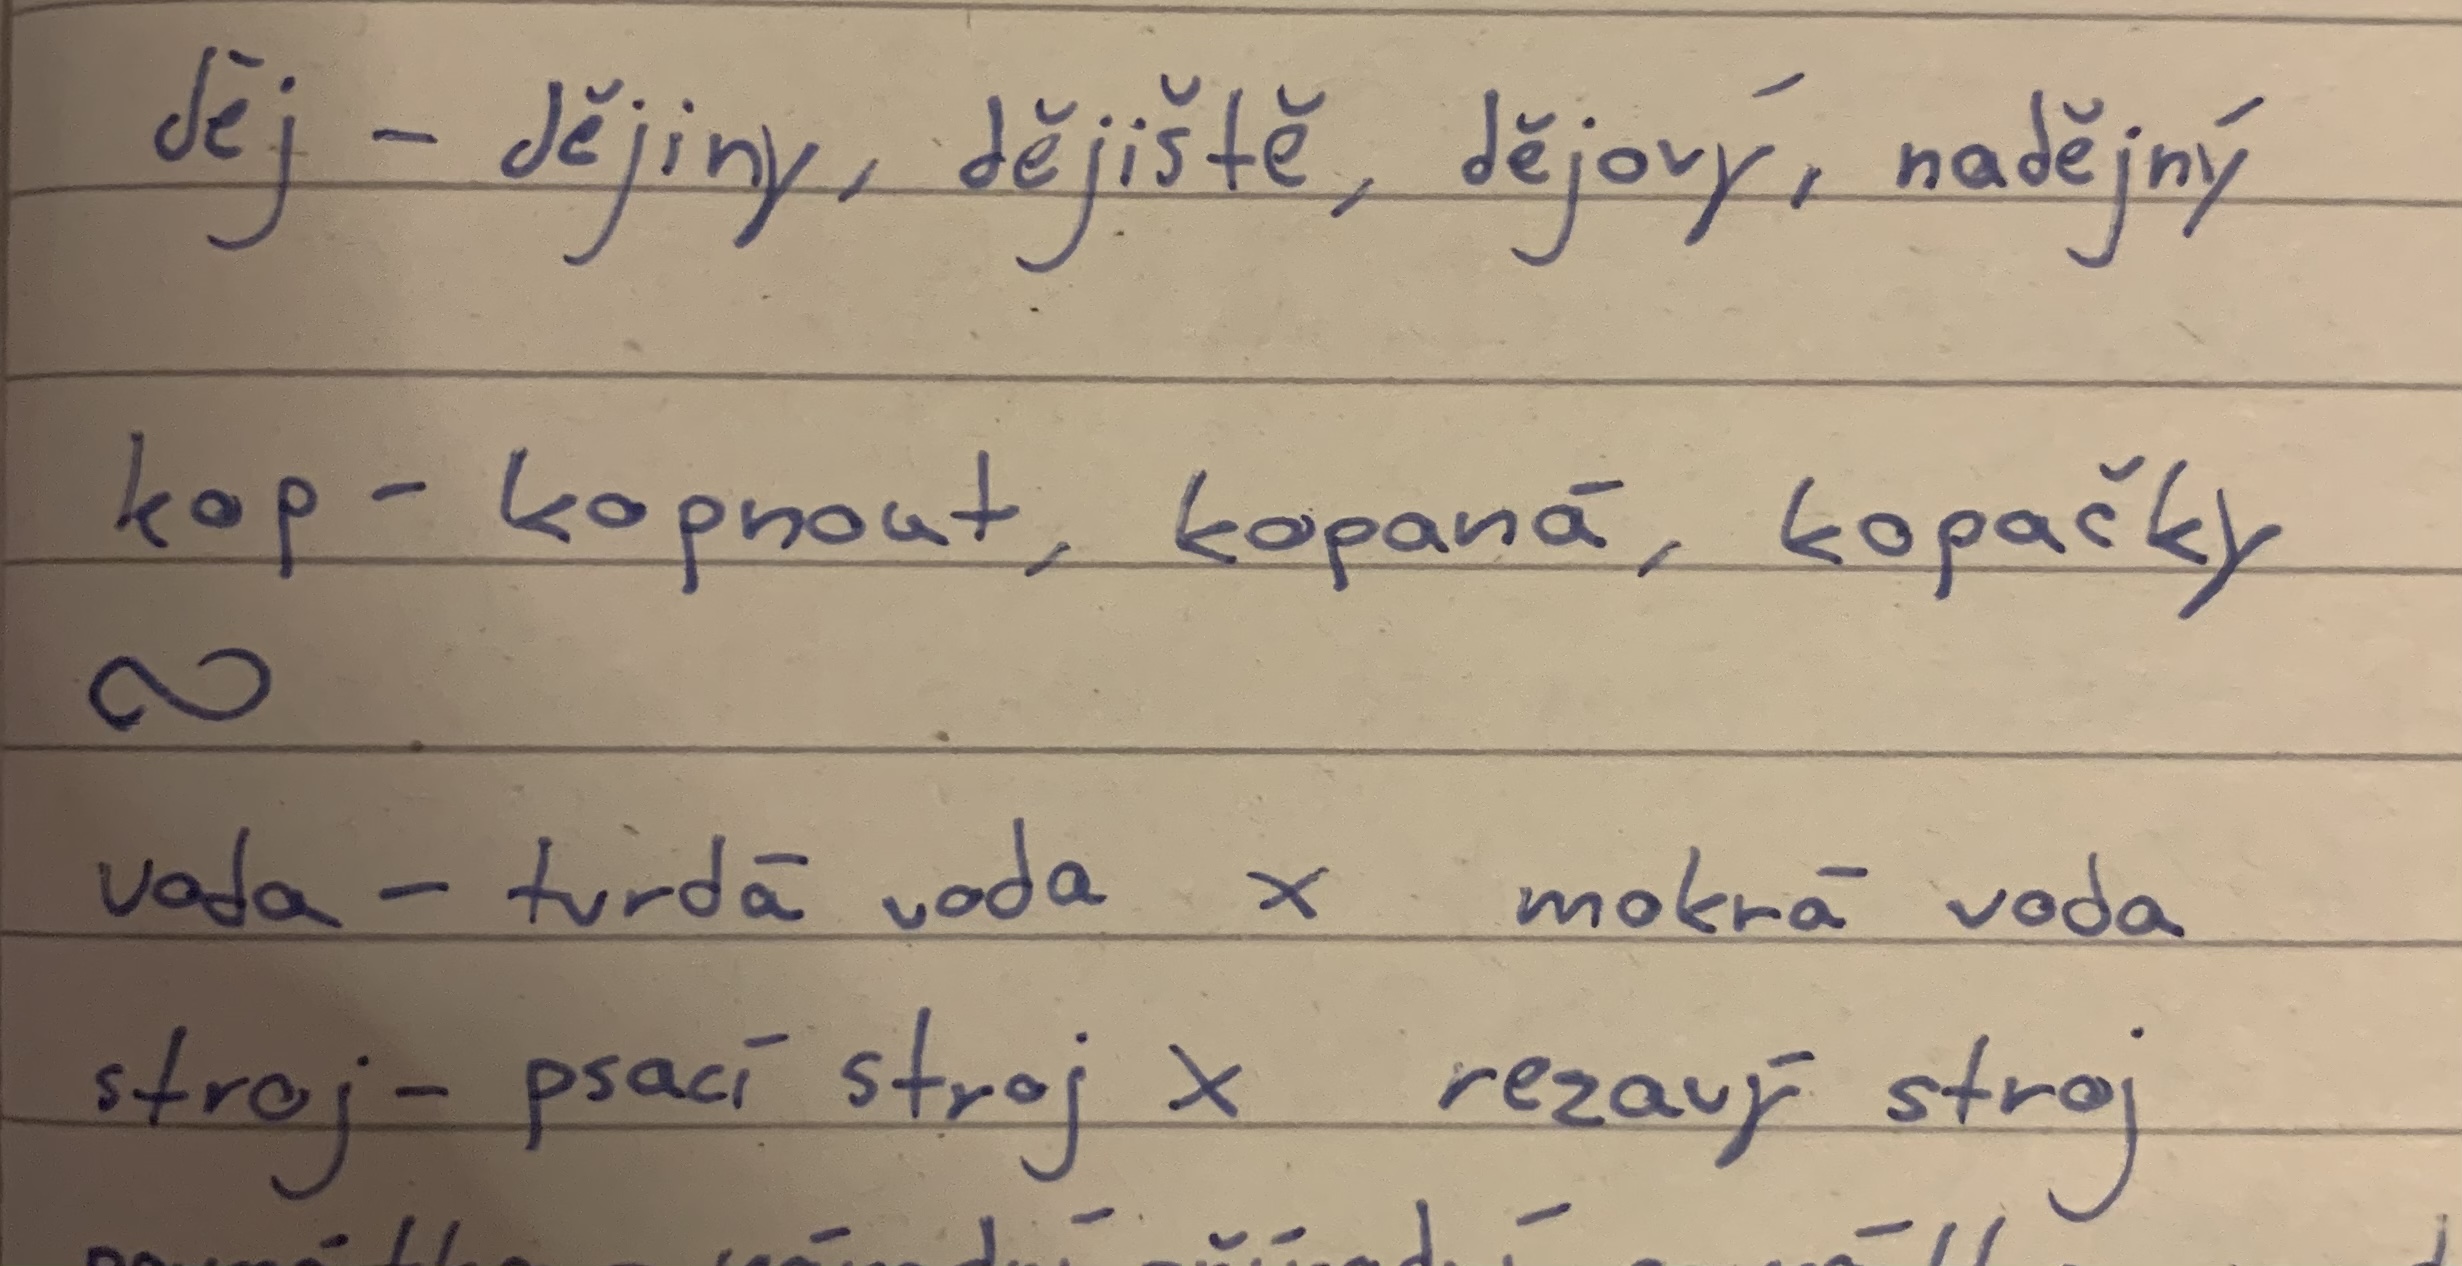 děj - dějiny, dějiště, dějový, nadějný
kop - kopnout, kopaná, kopačky
∾
voda - tvrdá voda x mokrá voda
stroj - psací stroj x rezavý stroj